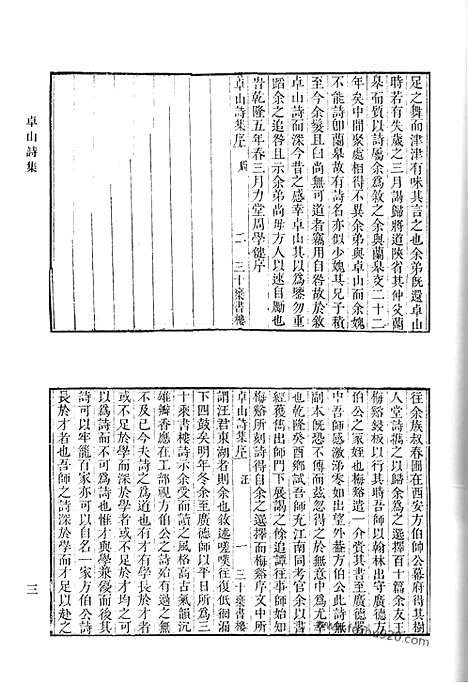 卓山詩集
足之舞而津津有味其言之也余弟旣還卓山
時若有失歲之三月謁歸將道陝省其仲父蘭
皋而質以詩屬余爲敘之余與蘭皋交二十二
年矣中間聚處相得不異余弟與卓山而余媿
不能詩卽蘭皋故有詩名亦似少媿其兄子積
至今余髮且白尚無可道者竊用自咎故於敘
卓山詩而深今昔之感幸卓山其以爲鑒勿重
蹈余之追咎且示余弟尚毋方人以速自勵也
旹乾隆五年春三月力堂周學健序
卓山詩集序
二
三十藥書樓
往余族叔春圃在西安方伯帥公幕府得其樹
人堂詩鐫之以歸余爲之選擇百十篇余友王
梅谿鋟板以行其時吾師以翰林出守廣德蓋
伯公之家嗣也余姪梅谿造一
中吾師感激涕零如出望外蓋方伯公此詩無
副本旣恐不傳而茲忽得之於意中爲尤幸
乾隆癸酉鄭試吾師充江南同考官余以書
經獲雋出師門下展謁之餘追譚往事師始知
梅谿所刻詩得自余之選擇而梅谿序文中所
卓山詩集序
一
三十藥書樓
謂汪君東湖者則余也敘述嗟嘆往復低徊漏
下四鼓矣明年冬余至廣德師以平日所爲三
十藥書樓詩示余受而讀之風格高古氣韻沉
雄瓣香應在工部視方伯公之詩有過之無
不及已今夫詩之爲道也有才有學長於才者
或不足於學而深於學者或不足於才均之可
以爲詩而不可與爲詩也惟才與學皆備而後
詩可以牢籠百家亦可以自名一家方伯公詩
長於才者也吾師之詩深於學而才足以赴之
三